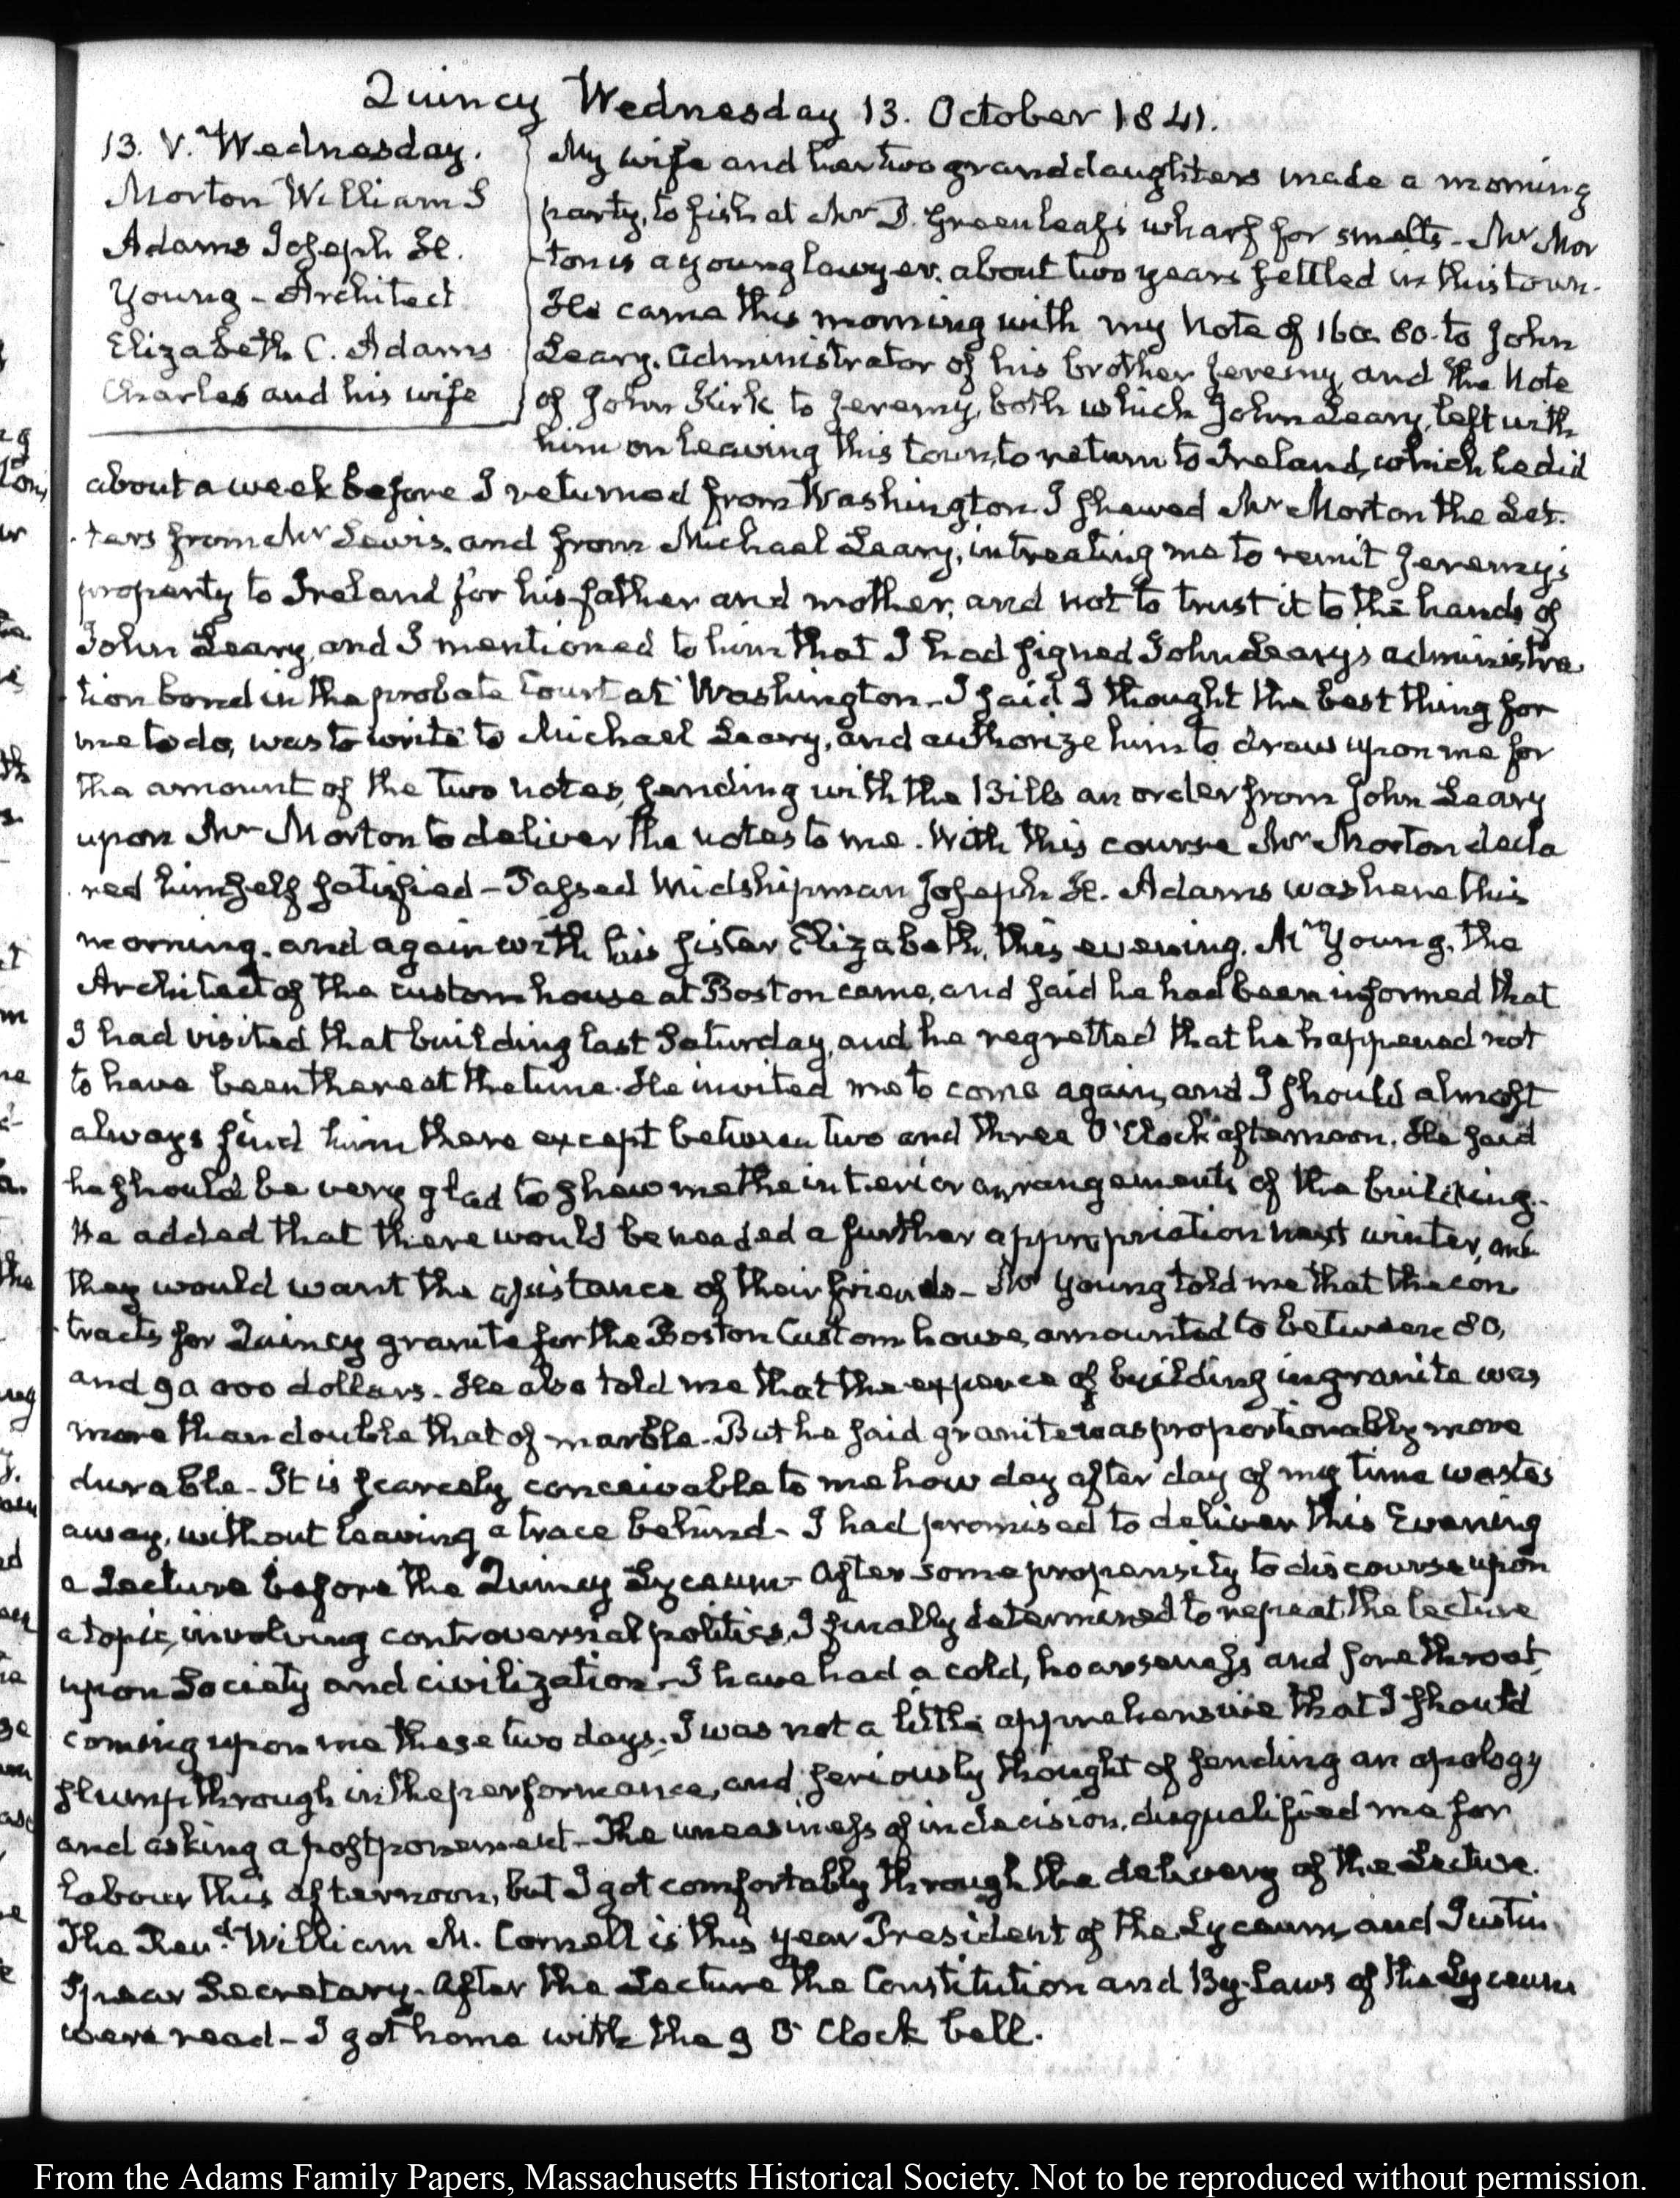 Quincy Wednesday 13. October 1841.
13. V. Wednesday.
Morton William S
Adams Joseph H.
Young - Architect
Elizabeth C. Adams
Charles and his wife
My wife and her two granddaughters made a morning
party, to fish at Mr D. Greenleaf's wharf for smelts - Mr Mor
-ton is a young lawyer, about two years settled in this town.
He came this morning with my Note of 160. 80. to John
Leary. Administrator of his brother Jeremy, and the Note
of John Kirk to Jeremy, both which John Leary, left with
him on leaving this town, to return to Ireland, which he did
about a week before I returned from Washington. I shewed Mr Morton the Let-
-ters from Mr Lewis, and from Michael Leary, intreating me to remit Jeremy's
property to Ireland for his father and mother, and not to trust it to the hands of
John Leary, and I mentioned to him that I had signed John Leary's administra
-tion bond in the probate Court at Washington - I said I thought the best thing for
me to do, was to write to Michael Leary, and authorize him to draw upon me for
the amount of the two notes, sending with the Bills an order from John Leary
upon Mr Morton to deliver the notes to me. With this course Mr Morton decla
-red himself satisfied - Passed Midshipman Joseph H. Adams was here this
morning, and again with his sister Elizabeth, this evening. Mr Young, the
Architect of the custom house at Boston came, and said he had been informed that
I had visited that building last Saturday, and he regretted that he happened not
to have been there at the time. He invited me to come again, and I should almost
always find him there except between two and three O'Clock afternoon. He said
he should be very glad to shew me the interior arrangements of the building -
He added that there would be needed a further appropriation next winter, and
they would want the assistance of their friends - Mr Young told me that the con
-tracts for Quincy granite for the Boston Custom house, amounted to between 80,
and 90 000 dollars. He also told me that the expence of building in granite was
more than double that of marble. But he said granite was proportionably more
durable - It is scarcely conceivable to me how day after day of my time wastes
away, without leaving a trace behind - I had promised to deliver this Evening
a Lecture before the Quincy Lyceum - After some propensity to discourse upon
a topic, involving controversial politics, I finally determined to repeat the lecture
upon Society and civilization - I have had a cold, hoarseness and sore throat,
coming upon me these two days, I was not a little apprehensive that I should
slump through in the performance, and seriously thought of sending an apology
and asking a postponement - The uneasiness of indecision, disqualified me for
labour this afternoon, but I got comfortably through the delivery of the Lecture.
The Revd. William M. Cornell is this year President of the Lyceum, and Justin
Spear Secretary - After the Lecture the Constitution and By-Laws of the Lyceum
were read - I got home with the 9 O'Clock bell.
From the Adams Family Papers, Massachusetts Historical Society. Not to be reproduced without permission.